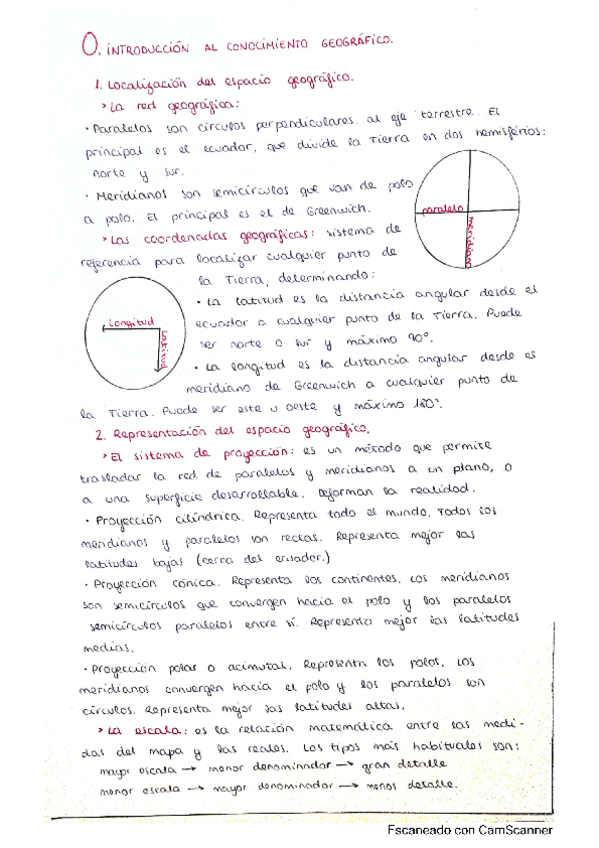 0. INTRODUCCIÓN AL CONOCIMIENTO GEOGRÁFICO.
1. Localización del espacio geográfico.
> La red geográfica:
· Paralelos son círculos perpendiculares al eje terrestre. El
principal es el ecuador, que divide la Tierra en dos hemisferios:
norte y sur.
· Meridianos son semicírculos que van de polo
a polo. El principal es el de Greenwich.
paralelo
meridiano
> Las coordenadas geográficas: sistema de
referencia para localizar cualquier punto de
la Tierra, determinando:
Longitud
Latitud
· La latitud es la distancia angular desde el
ecuador a cualquier punto de la Tierra. Puede
ser norte o sur y máximo 90°.
· La longitud es la distancia angular desde es
meridiano de Greenwich a cualquier punto de
la Tierra. Puede ser este u oeste y máximo 180°.
2. Representación del espacio geográfico.
> El sistema de proyección: es un método que permite
trasladar la red de paralelos y meridianos a un plano, o
a una superficie desarrollable. Deforman la realidad.
· Proyección cilíndrica. Representa todo el mundo. Todos los
meridianos y paralelos son rectas. Representa mejor las
latitudes bajas (cerca del ecuador.)
· Proyección cónica. Representa los continentes. Los meridianos
son semicírculos que convergen hacia el polo y los paralelos
semicírculos paralelos entre sí. Representa mejor las latitudes
medias.
· Proyección polar o acimutal. Representa los polos. Los
meridianos convergen hacia el polo y los paralelos son
círculos. Representa mejor las latitudes altas.
> La escala: es la relación matemática entre las medi-
das del mapa y las reales. Los tipos más habituales son:
mayor escala → menor denominador → gran detalle
menor escala → mayor denominador → menos detalle.
Escaneado con CamScanner